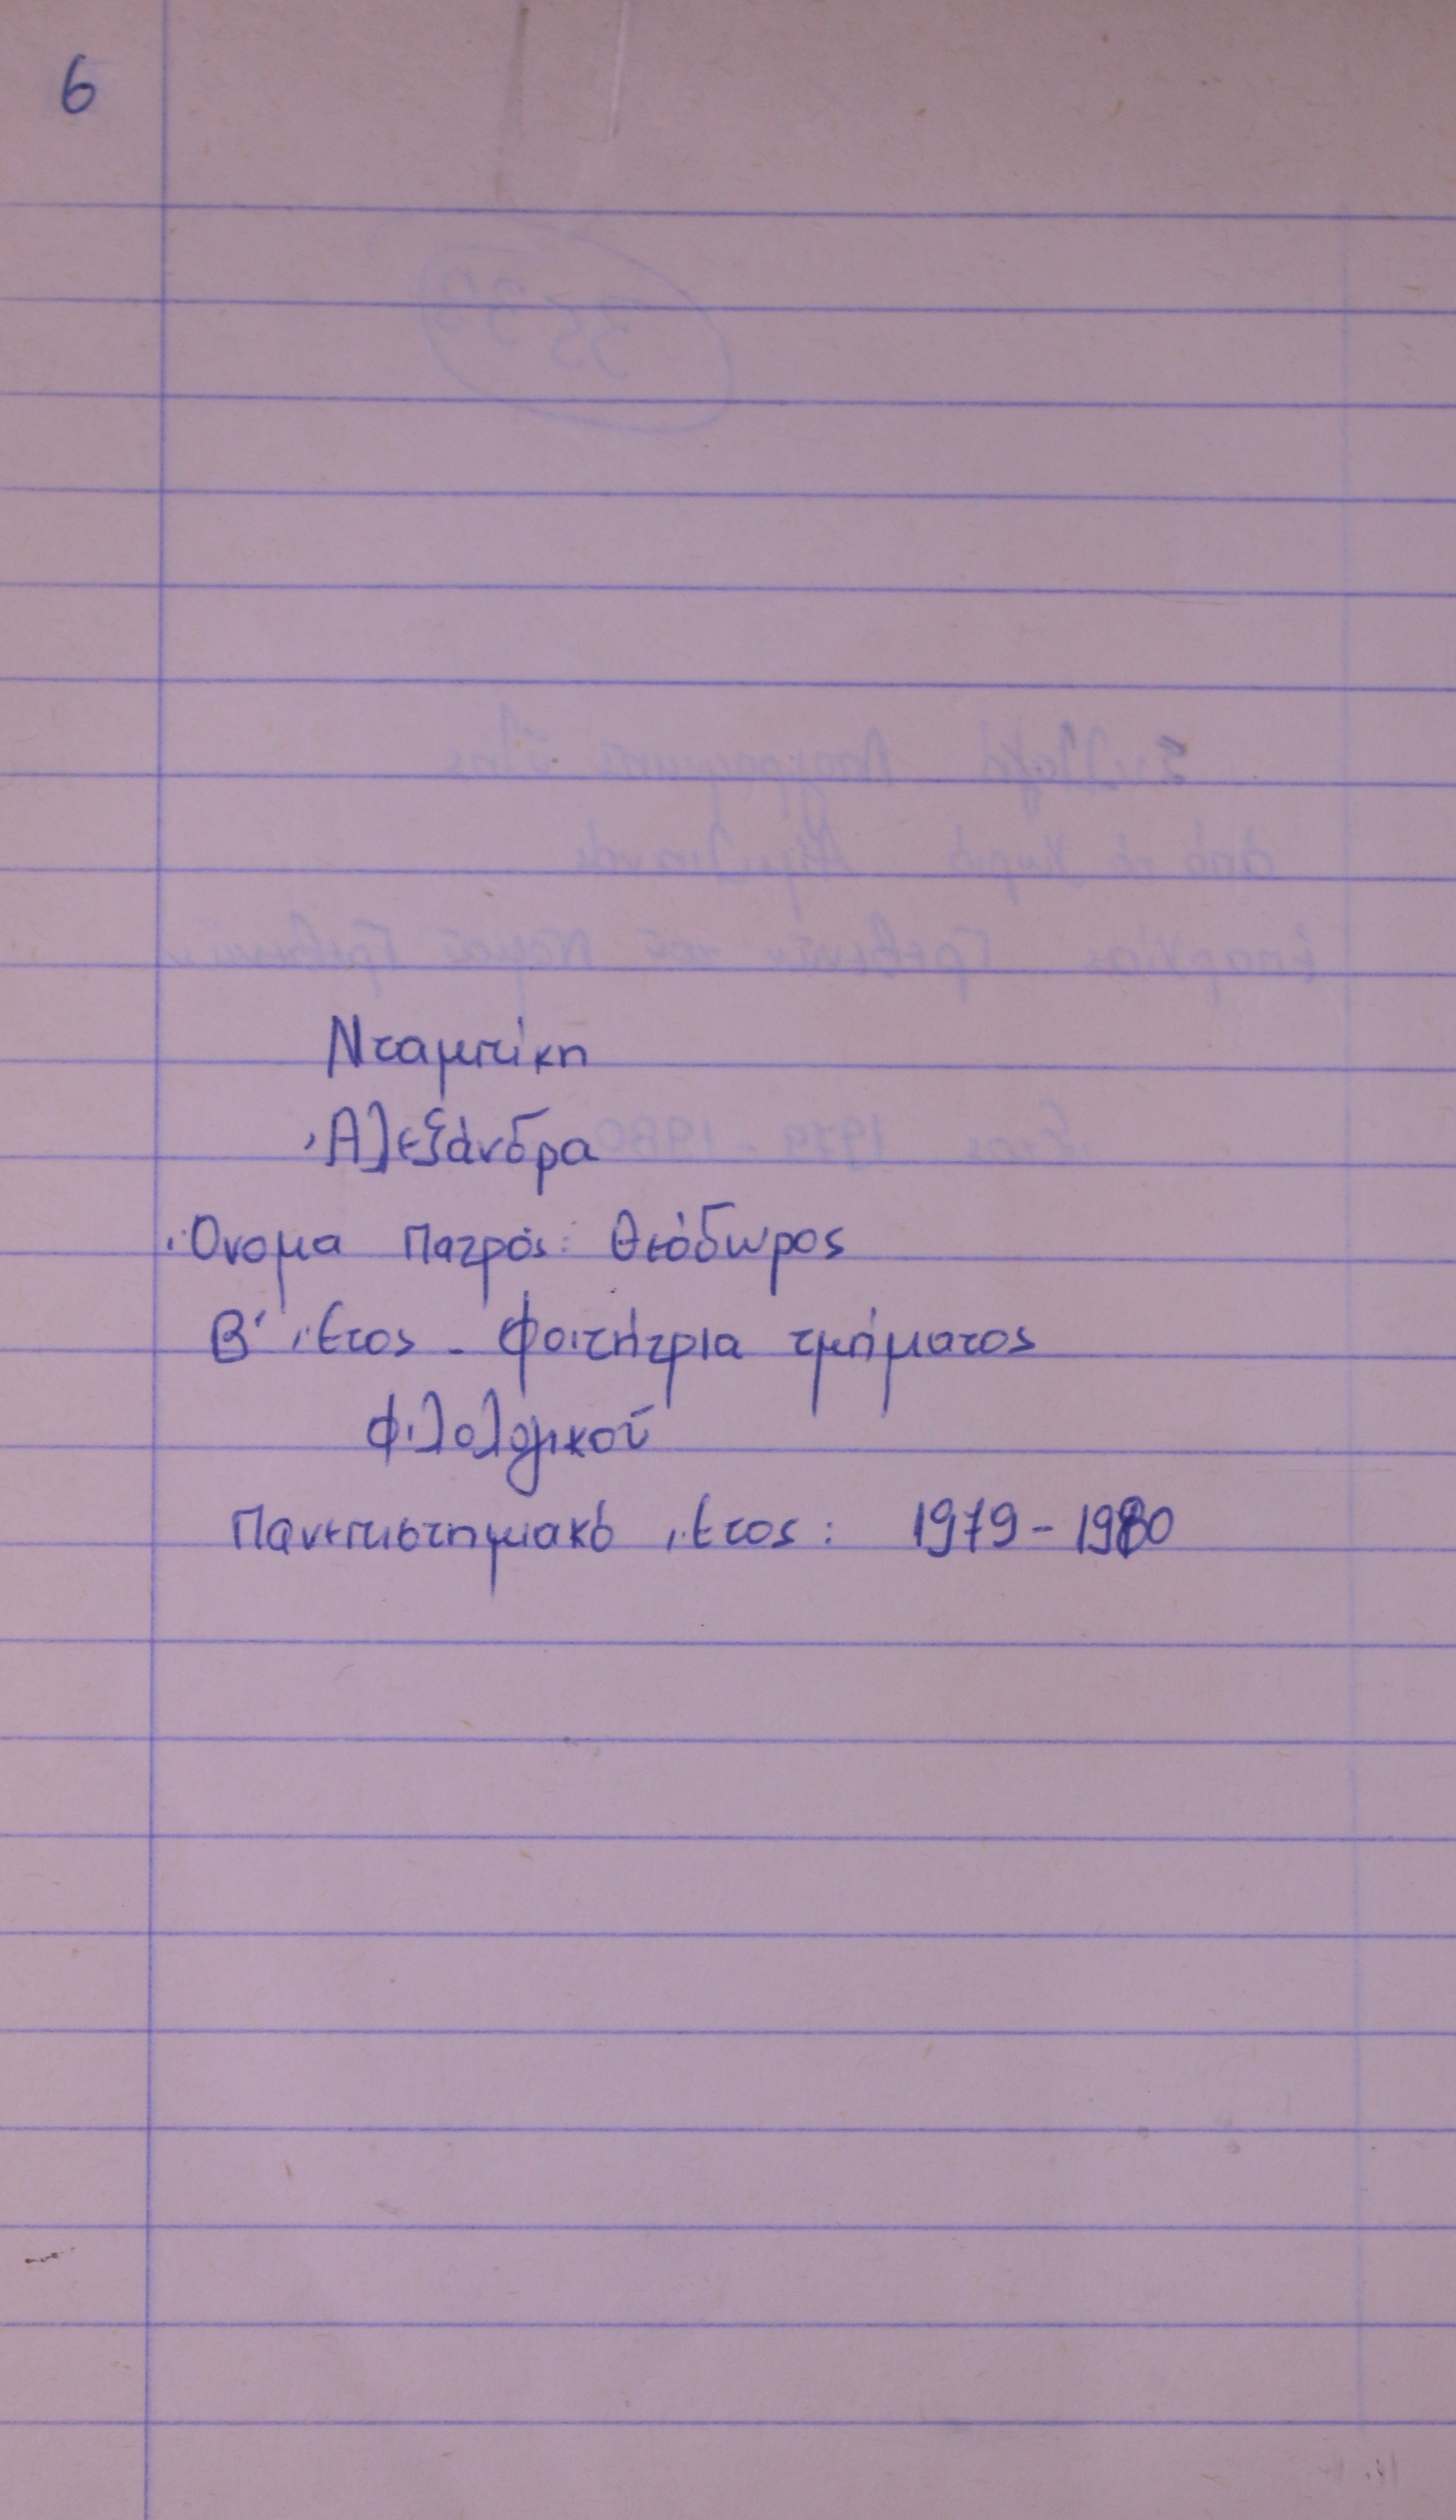 6
Νταμπίκη
Ἀλεξάνδρα
Ὄνομα Πατρός: Θεόδωρος
Β' Ἔτος - Φοιτήτρια τμήματος
Φιλολογικοῦ
Πανεπιστημιακό Ἔτος: 1979-1980